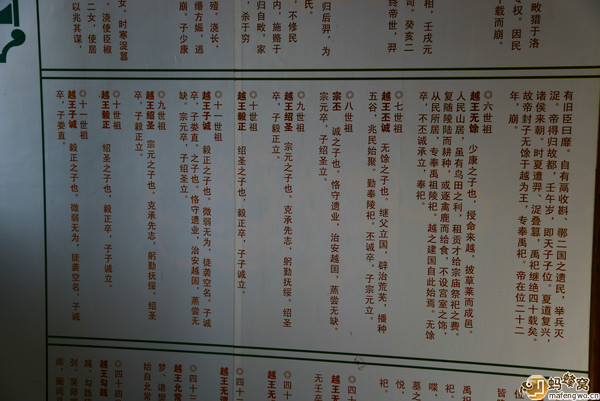 畎猎于洛
权。因民
载而崩。
相。壬戌元
司。癸亥二
终帝世，羿
归后羿，为
不修民
内，施赂于
归自畋，家
杀于穷
殪。浇长，
缗方娠，逃
崩。子少康
女，时寒浞篡
浇使臣椒
二女，使居
以兆其谋，
有旧臣曰靡。自有鬲收斟、鄩二国之遗民，举兵灭
浞。帝得归故都，壬午岁，即天子位。夏道复兴，
诸侯来朝。时夏遭羿、浞叠篡，禹祀继绝四十载矣。
故帝封子无馀于越为王，专奉禹祀。帝在位二十二
年，崩。
◎六世祖
越王无馀 少康之子也，授命来越，披草莱而成邑。
人民山居，虽有鸟田之利，租贡才给宗庙祭祀之费。
复随陵陆而耕种，或逐禽鹿而给食，不设宫室之饰，
从民所居，专奉禹祖陵祀。越之建国自此始焉。无馀
卒，不丕诚承立，奉祀。
◎七世祖
越王丕诚 无馀之子也。继父立国，辟治荒芜，播种
五谷，兆民始聚。勤奉陵祀。不诚卒，子宗元立。
◎八世祖
宗丕 诚之子也，恪守遗业，治安越国，蒸尝无缺。
宗元卒，子绍圣立。
◎九世祖
越王绍圣 宗元之子也。克承先志，躬勤抚绥。绍圣
卒，子毅正立。
◎十世祖
越王毅正 绍圣之子也，毅正卒，子子诚立。
◎十一世祖
越王子诚 毅正之子也。微弱无为，徒袭空名，子诚
卒，子娄直。之子也。恪守遗业，治安越国，蒸尝无
缺。宗元卒，子绍圣立。
◎九世祖
越王绍圣 宗元之子也。克承先志，躬勤抚绥。绍圣
卒，子毅正立。
◎十世祖
越王毅正 绍圣之子也，毅正卒，子子诚立。
◎十一世祖
越王子诚 毅正之子也。微弱无为，徒袭空名，子诚
卒，子娄直。
蚂蜂窝
mafengwo.cn